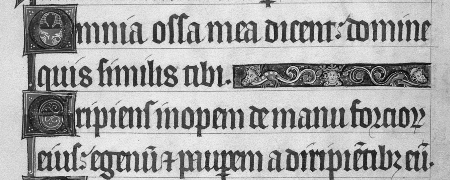 Omnia ossa mea dicent: domine
quis similis tibi.
Eripiens inopem de manu forcior
eius: egenū ⁊ paupem a diripiētibȝ eū.